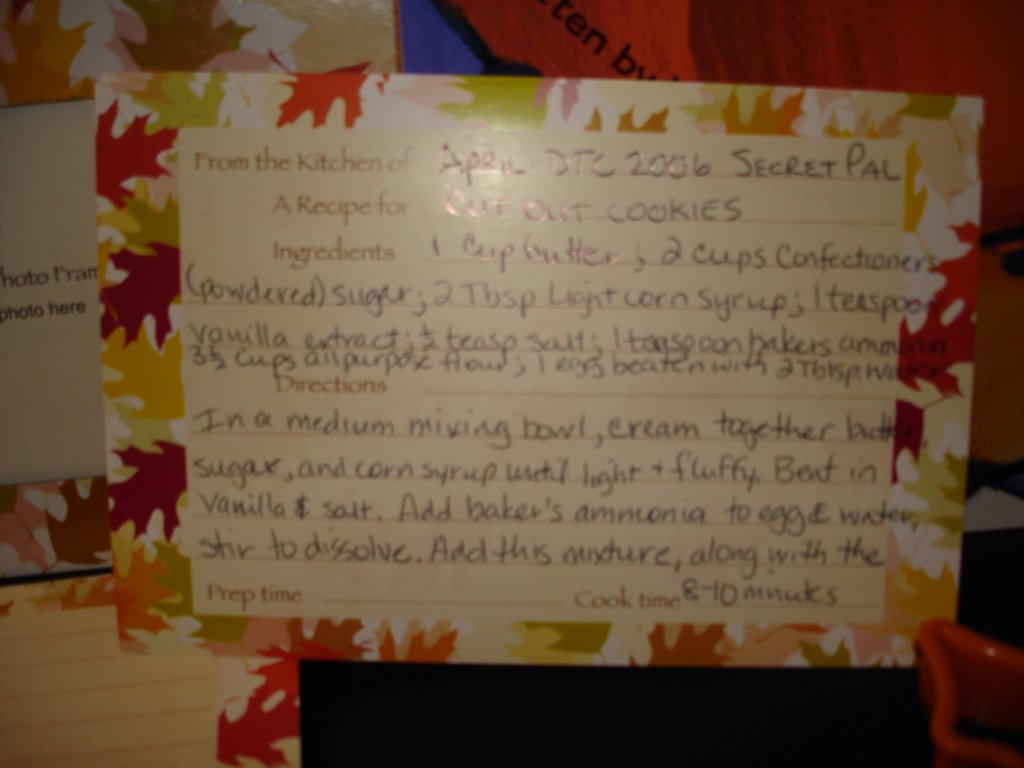 tten by
From the Kitchen of April DTC 2006 SECRET PAL
A Recipe for CUT OUT COOKIES
Ingredients 1 Cup butter; 2 cups Confectioners
(powdered) sugar; 2 Tbsp Light corn syrup; 1 teaspoon
hoto Fram
photo here
vanilla extract; ½ teasp salt; 1 teaspoon bakers ammonia
cups all purpose flour; 1 egg beaten with 2 Tblsp. water
Directions
In a medium mixing bowl, cream together butter,
sugar, and corn syrup until light + fluffy. Beat in
Vanilla & salt. Add baker's ammonia to egg & water,
stir to dissolve. Add this mixture, along with the
Prep time Cook time 8-10 minutes